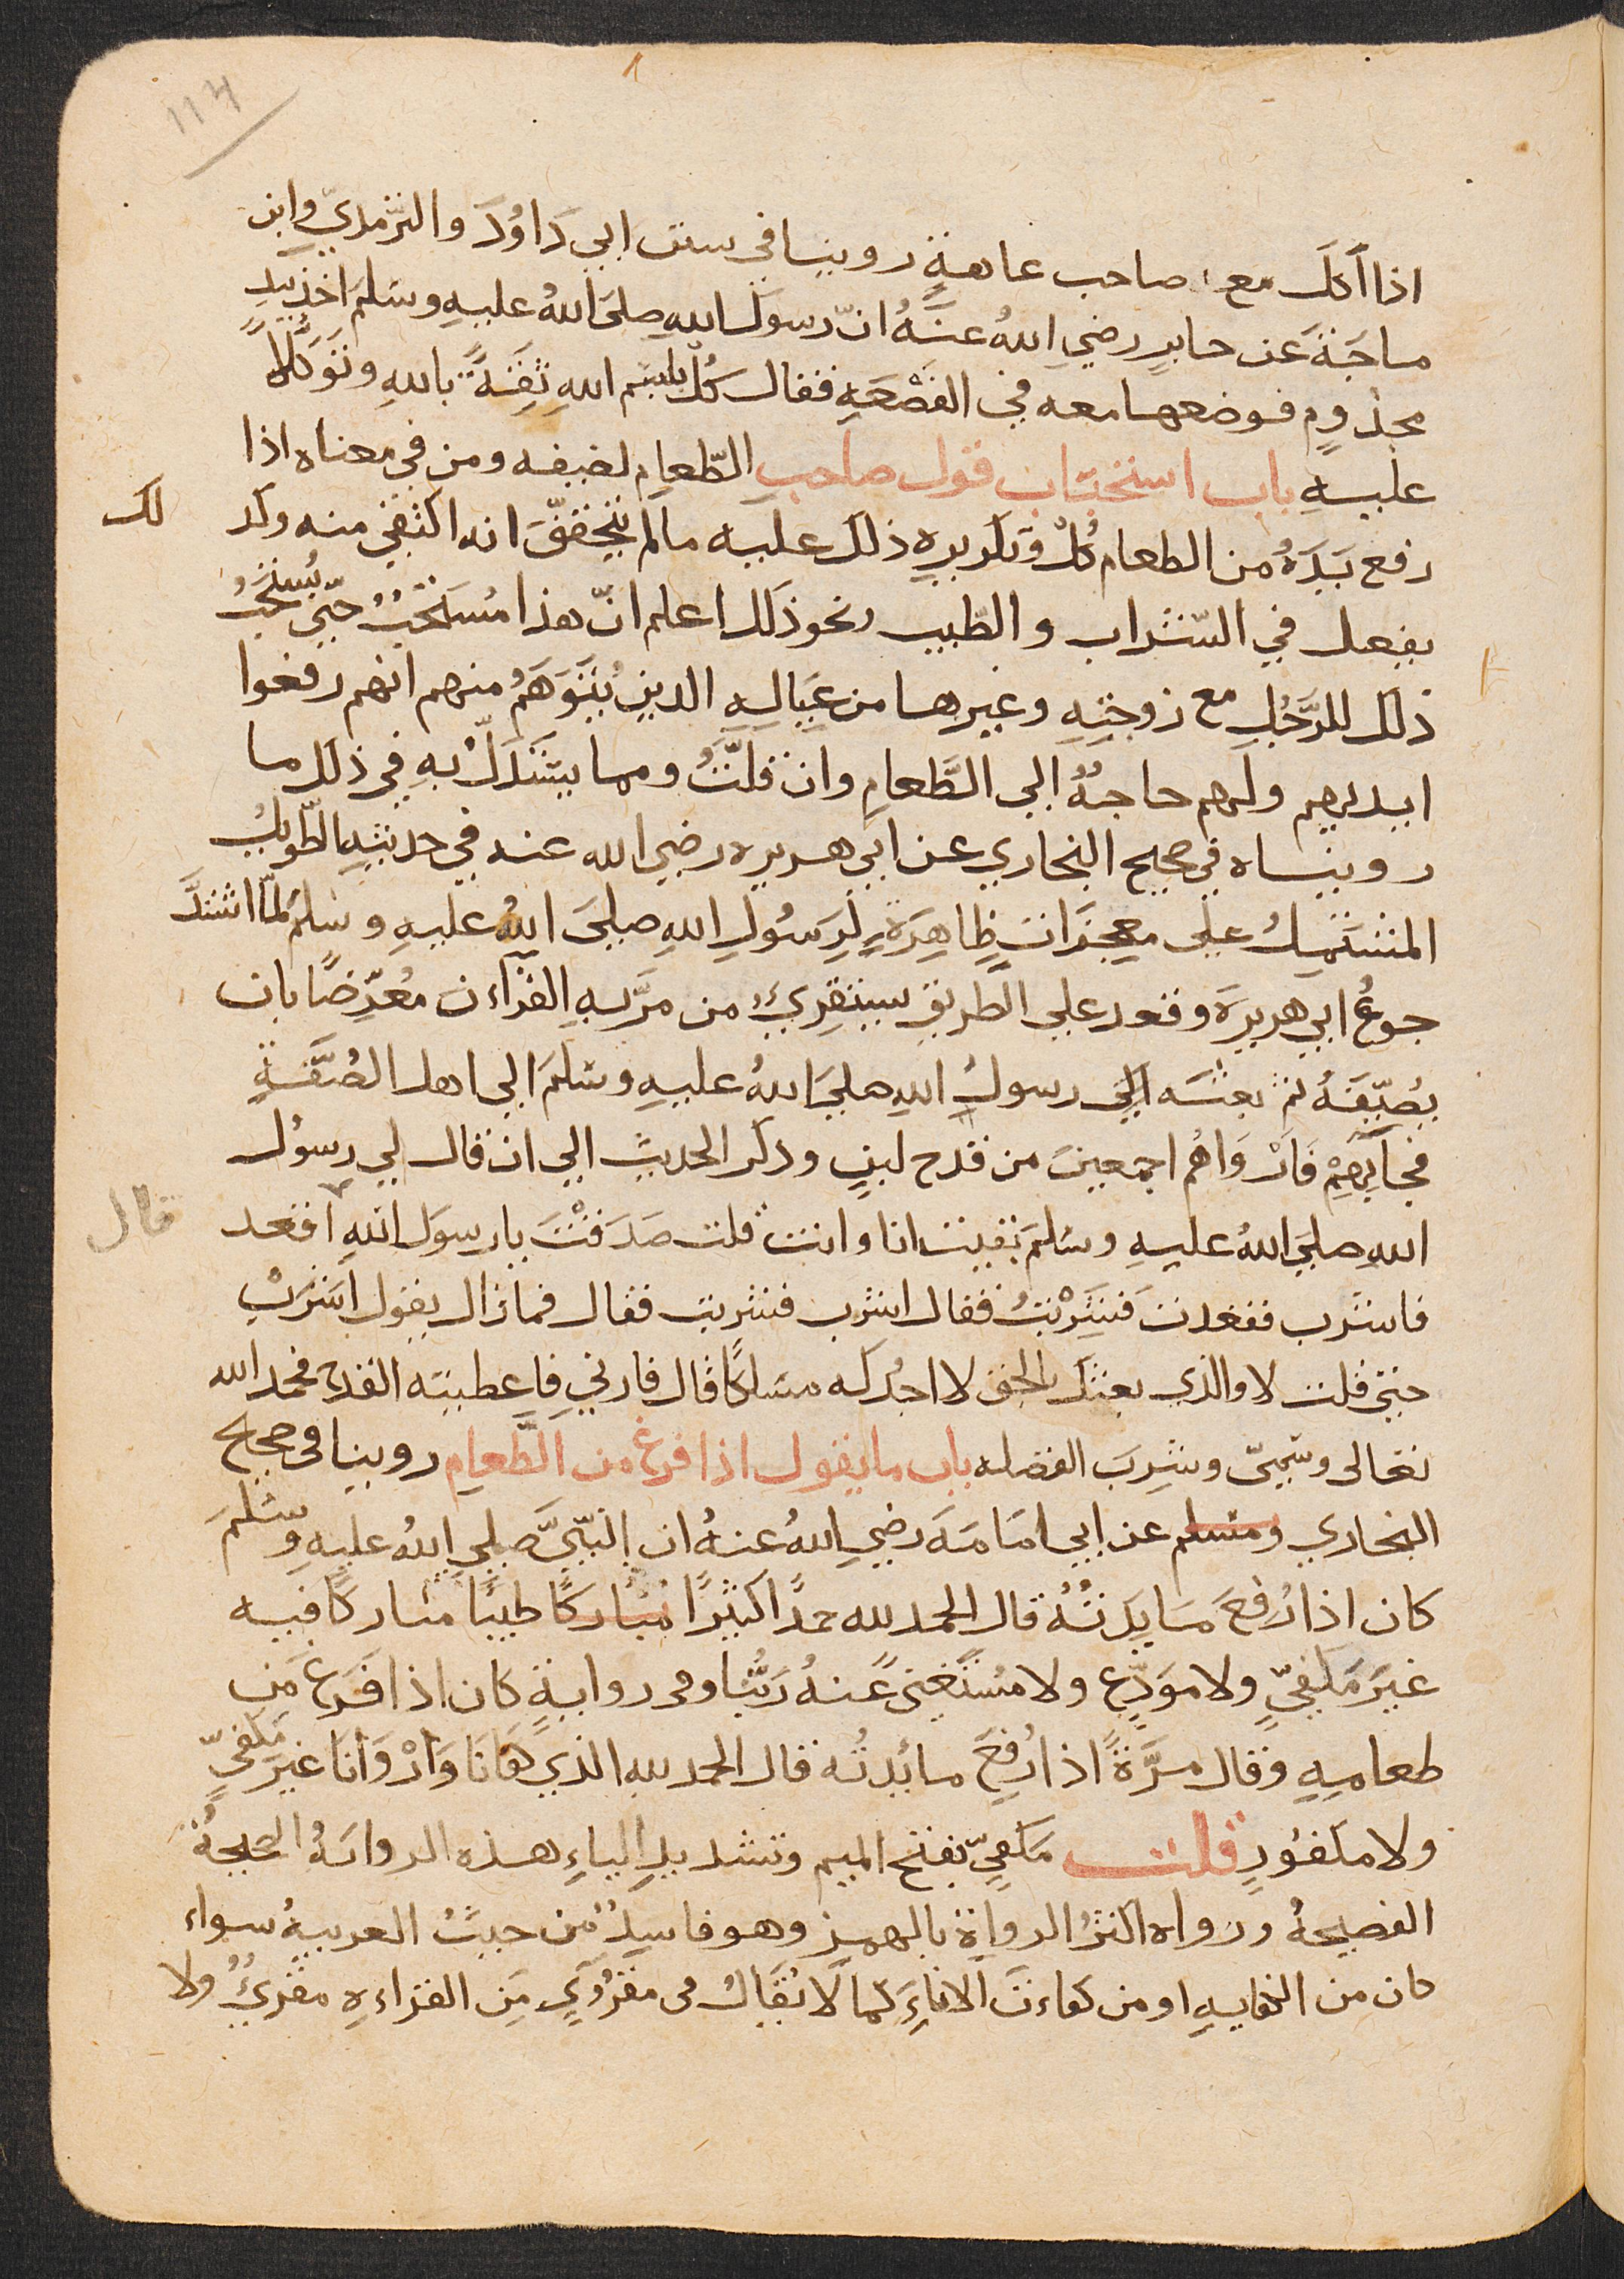 114
اذا أكلَ مع صاحب عاهةٍ روينا في سنن ابي دَاوُدَ والتّرمذيّ وابن
ماجَةَ عن جابرٍ رضي اللهُ عنهُ انّ رسولَ اللهِ صلى اللهُ عليهِ وسَلمَ اخذ بيدِ
مجذومٍ فوضعها معه في القَصْعَهِ فقال كُل بِسْم اللهِ ثِقةً باللهِ وتَوَكلاً
عليهِ باب استحباب قول صاحبِ الطّعامِ لضيفه ومن في معناه اذا
رفع يَدَهُ من الطعام كُل وتكريره ذلك عليه مالم يتحققَ انه اكتفي منه وكذ لك
يفعل في الشّراب والطّيب ونحو ذلك اعلم انّ هذا مُستَحَبٌ حتي يُستحَبُ
ذلك للرَّجُلِ مع زوجتهِ وغيرها من عيالهِ الذين يُتَوَهَّمُ منهم انهم رفعوا
ايديهم ولهم حاجهٌ الي الطَّعامِ وان قلّتْ ومما يستَدَلُّ بهِ في ذلك ما
رويناه في صحيح البخاري عن ابي هريره رضي الله عنه في حديثهِ الطّويلِ
المشتَمِلُ علي معجزاتٍ ظاهِرَةٍ لرَسُولِ اللهِ صلي اللهُ عليهِ وسَلمَ لمّا اشتدَّ
جوعُ ابي هريرةَ وقعد علي الطريق يستقرِئُ من مرَّ بهِ القرآن مُعرّضًا بان
يُضَيّفَهُ ثم بعثه الي رسولُ اللهِ صلي اللهُ عليهِ وسَلمَ الي اهل الصُفّةِ
فجآبِهِمْ فَارْوَاهُم اجمعين من قدح لبنٍ وذكر الحديث الي ان قال لي رسول
اللهِ صلي اللهُ عليهِ وسَلمَ بقيت انا وانت قلت صَدَقْتَ يا رسولَ اللهِ اقعد قال
فاشرب فقعدت فشَرِبْتُ فقال اشرب فشربت فقال فمازال يقول اشرَبْ
حتي قلت لا والذي بعثك بالحق لا اجد له مسلكًا قال فارني فاعطيته القدح فحمد الله
تعالي وسَمّي وشرِبَ الفضله باب ما يقول اذا فرغ من الطَّعامِ روينا في صحيح
البخاري ومسلم عن ابي امَامَةَ رضي اللهُ عنهُ ان النّبيَّ صلي اللهُ عليهِ وسَلمَ
كان اذا رُفِعَ مَايِدَتُهُ قال الحمد لله حمدًا كثيرًا مُباركًا طيبًا مباركًا فيه
غيرَ مَكفيٍّ ولا مودّعٍ ولا مُستَغنيً عنهُ رَبُنَا وفي روايةٍ كان اذا فَرَغَ من
طعامهِ وقال مرَّةً اذا رُفِعَ مائدتُه قال الحمد لله الذي كفَانَا وَارْوَانَا غيرَ مَكفيٍّ
ولا مكفُورٍ قلت مَكفيّ بفتح الميم وتشديدِ الياءِ هذه الروايهُ الصحيحةُ
الفصيحهُ ورواه اكثرُ الرواةِ بالهمزِ وهو فاسِدٌ من حيثُ العربيهُ سواء
كان من الكفايهِ او من كفاءتَ الاناءِ كما لا يُقَالُ في مقرُوّيٍ من القراءهِ مقرِئٌ ولا